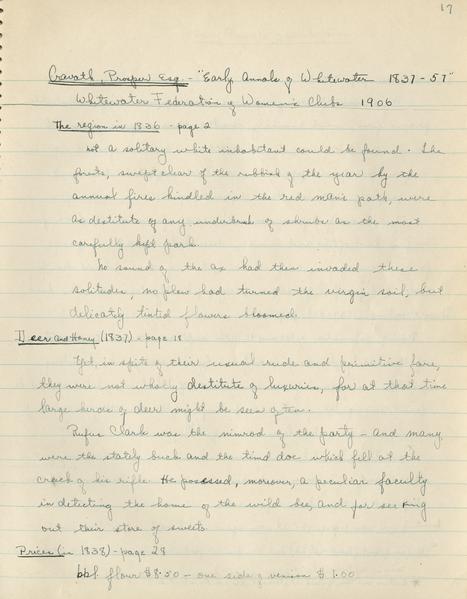 17
Cravath, Prosper Esq. - "Early Annals of Whitewater 1837-57"
Whitewater Federation of Women's Clubs 1906
The region in 1836 - page 2
not a solitary white inhabitant could be found. The
firsts, swept clear of the rubbish of the year by the
annual fires kindled in the red man's path, were
as destitute of any underbrush of shrubs as the most
carefully kept park.
No sound of the ax had then invaded these
solitudes, no plow had turned the virgin soil, but
delicately tinted flowers bloomed.
Deer and Honey (1837) - page 18
Yet, in spite of their usual rude and primitive fare,
they were not wholly destitute of luxuries, for at that time
large herds of deer might be seen often.
Rufus Clark was the nimrod of the party - and many
were the stately buck and the timid doe which fell at the
crack of his rifle. He possessed, moreover, a peculiar faculty
in detecting the home of the wild bee, and for seeking
out their store of sweets.
Prices (in 1838) - page 28
bbl flour $8.50 - one side of venison $1.00